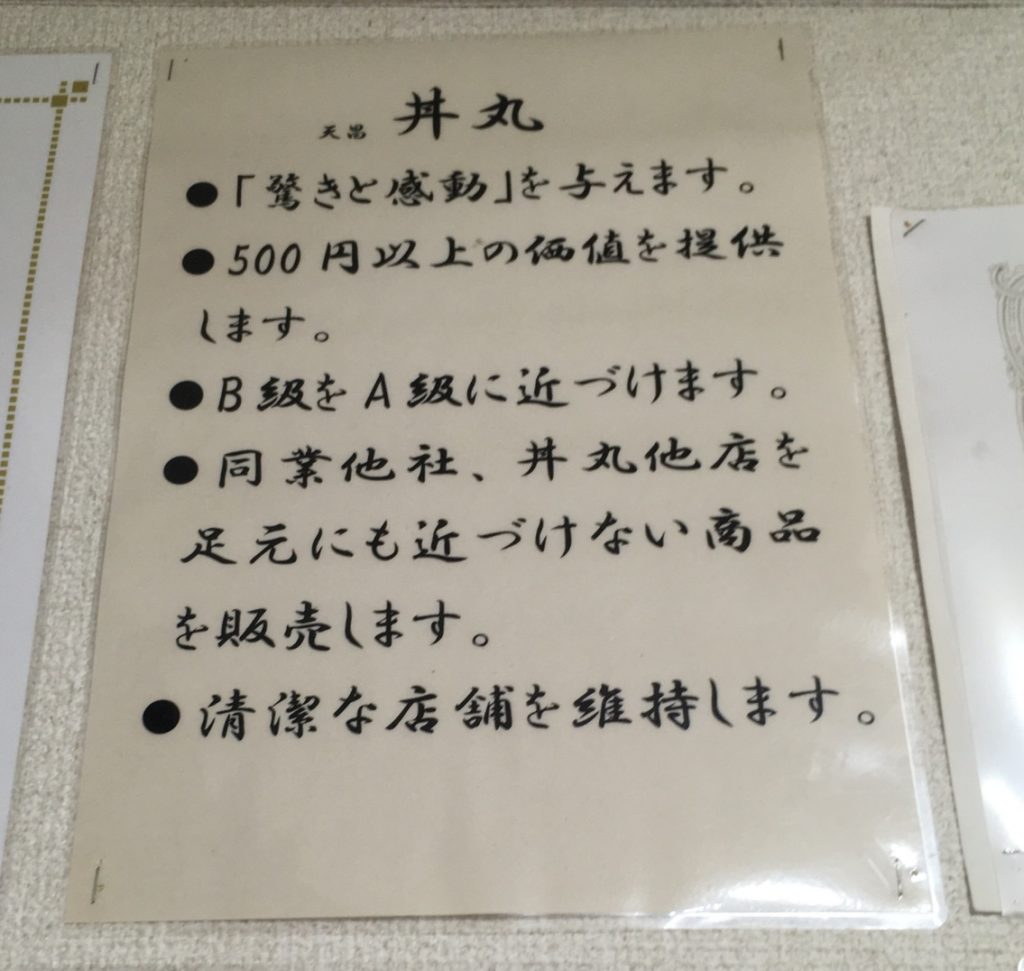 天畠 丼丸
●「驚きと感動」を与えます。
●500円以上の価値を提供
します。
●B級をA級に近づけます。
●同業他社、丼丸他店を
足元にも近づけない商品
を販売します。
●清潔な店舗を維持します。